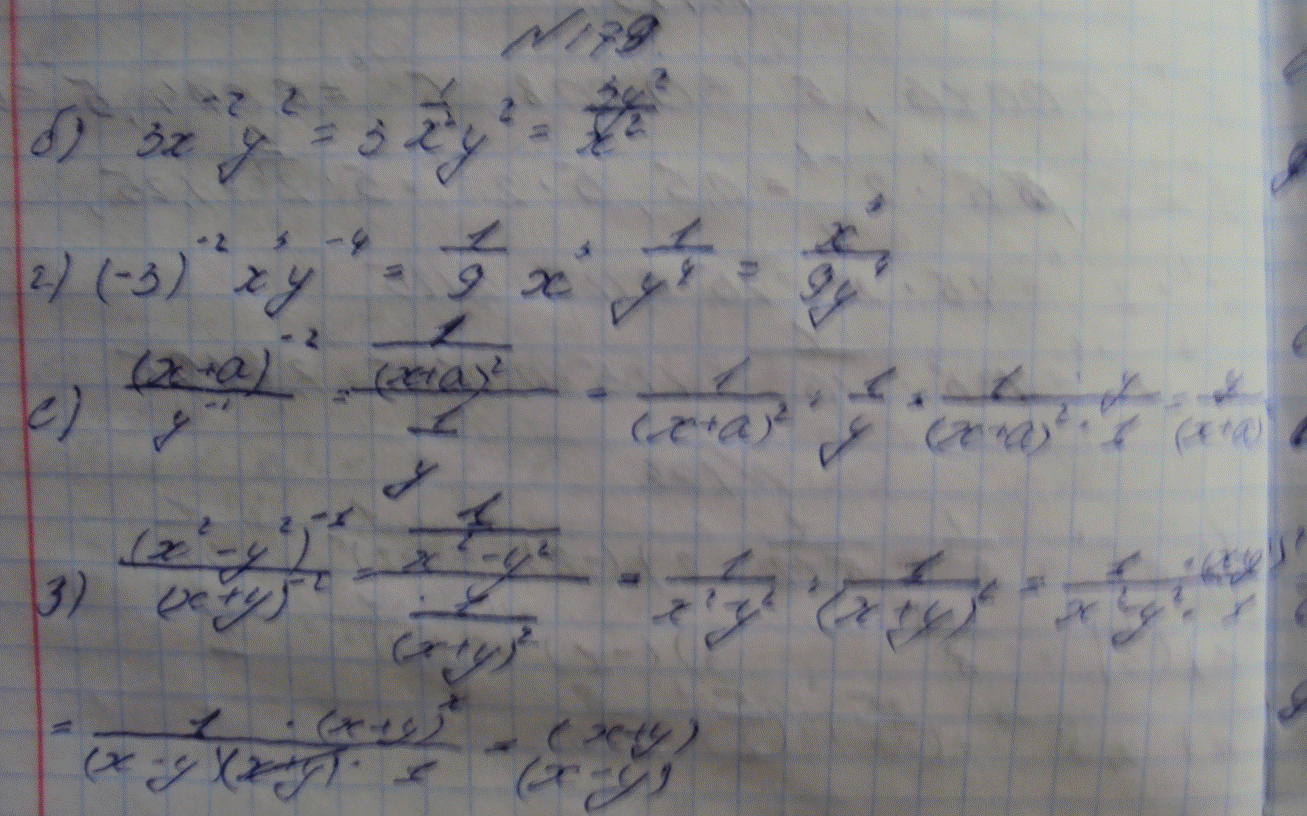 №179
б) 3x⁻²y² = 3 1/x² y² = 3y²/x²
г) (-3)⁻² x⁵ y⁻⁴ = 1/9 x⁵ 1/y⁴ = x⁵/9y⁴
е) (x+a)⁻²/y⁻¹ = (1/(x+a)²)/(1/y) = 1/(x+a)² : 1/y = 1 · y/(x+a)² · 1 = y/(x+a)
з) (x²-y²)⁻¹/(x+y)⁻² = (1/x²-y²)/(1/(x+y)²) = 1/x²-y² : 1/(x+y)² = 1 · (x+y)²/x²-y² · 1
= 1 · (x+y)²/(x-y)(x+y) · 1 = (x+y)/(x-y)